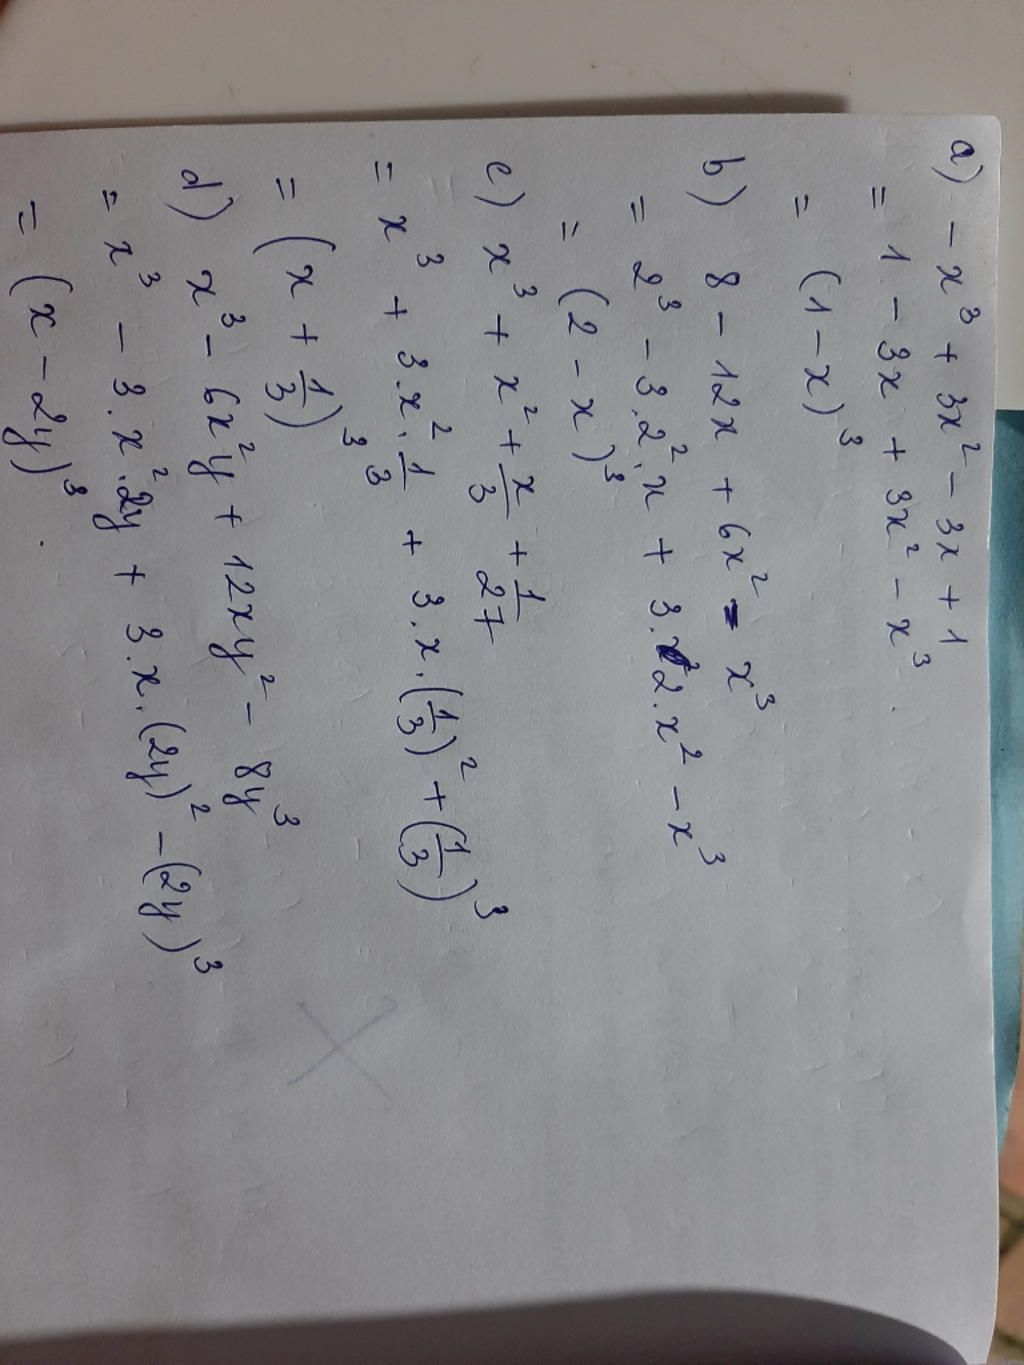 a) -x³ + 3x² - 3x + 1
= 1 - 3x + 3x² - x³.
= (1-x)³
b) 8 - 12x + 6x² - x³
= 2³ - 3.2².x + 3.2.x² - x³
= (2-x)³
c) x³ + x² + x/3 + 1/27
= x³ + 3.x².1/3 + 3.x.(1/3)² + (1/3)³
= (x + 1/3)³
d) x³ - 6x²y + 12xy² - 8y³
= x³ - 3.x².2y + 3.x.(2y)² - (2y)³
= (x - 2y)³.